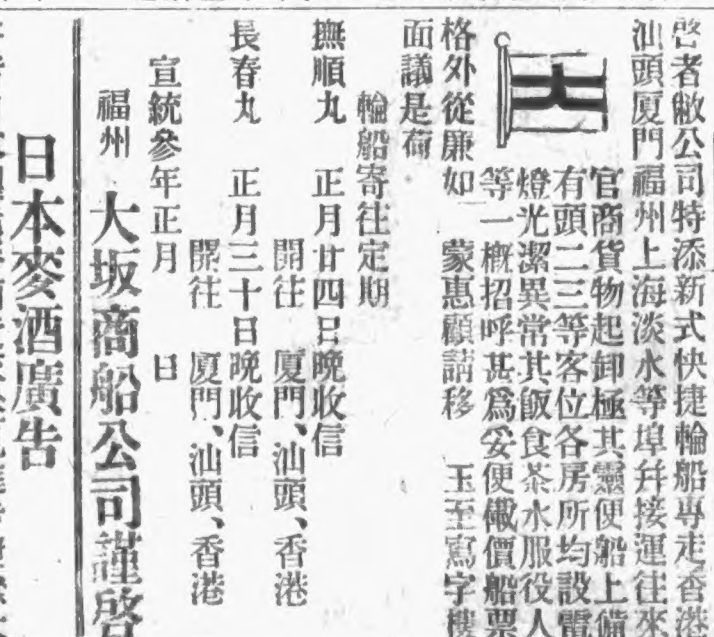 啓者敝公司特添新式快捷輪船專走香港
汕頭厦門福州上海淡水等埠并接運往來
官商貨物起卸極其靈便船上備
有頭二三等客位各房所均設電
燈光潔異常其飯食茶水服役人
等一概招呼甚爲妥便儎價船票
格外從廉如 蒙惠顧請移 玉至寫字樓
面議是荷
輪船寄往定期
撫順九 正月廿四日晩收信
開往 厦門、汕頭、香港
長春丸 正月三十日晩收信
開往 厦門、汕頭、香港
宣統參年正月 日
福州 大坂商船公司謹啟
日本麥酒廣告